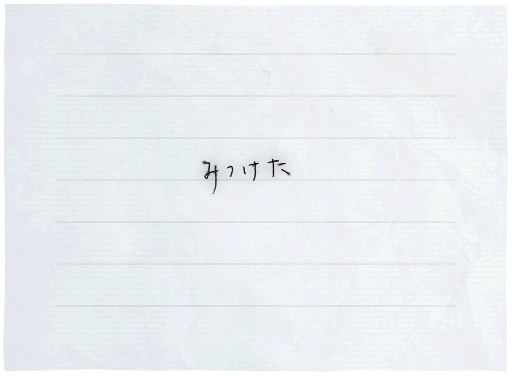 みつけた